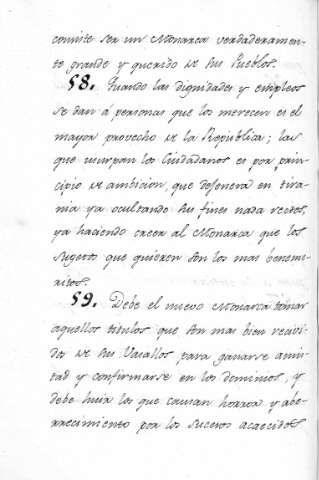 convite ser un Monarca verdaderamen-
te grande y querido de sus Pueblos.
58. Quando las dignidades y empleos
se dan á personas que los merecen es el
mayor provecho de la Republica; las
que usurpan los Ciudadanos es por prin-
cipio de ambicion, que degenera en tira-
nia ya ocultando sus fines nada rectos,
ya haciendo creer al Monarca que los
sugetos que quieren son los mas beneme-
ritos.
59. Debe el nuevo Monarca tomar
aquellos titulos que son mas bien recivi-
dos de sus Vasallos para ganarse amis-
tad y confirmarse en los dominios, y
debe huir los que causan horror y abo-
rrecimiento por los sucesos acaecidos